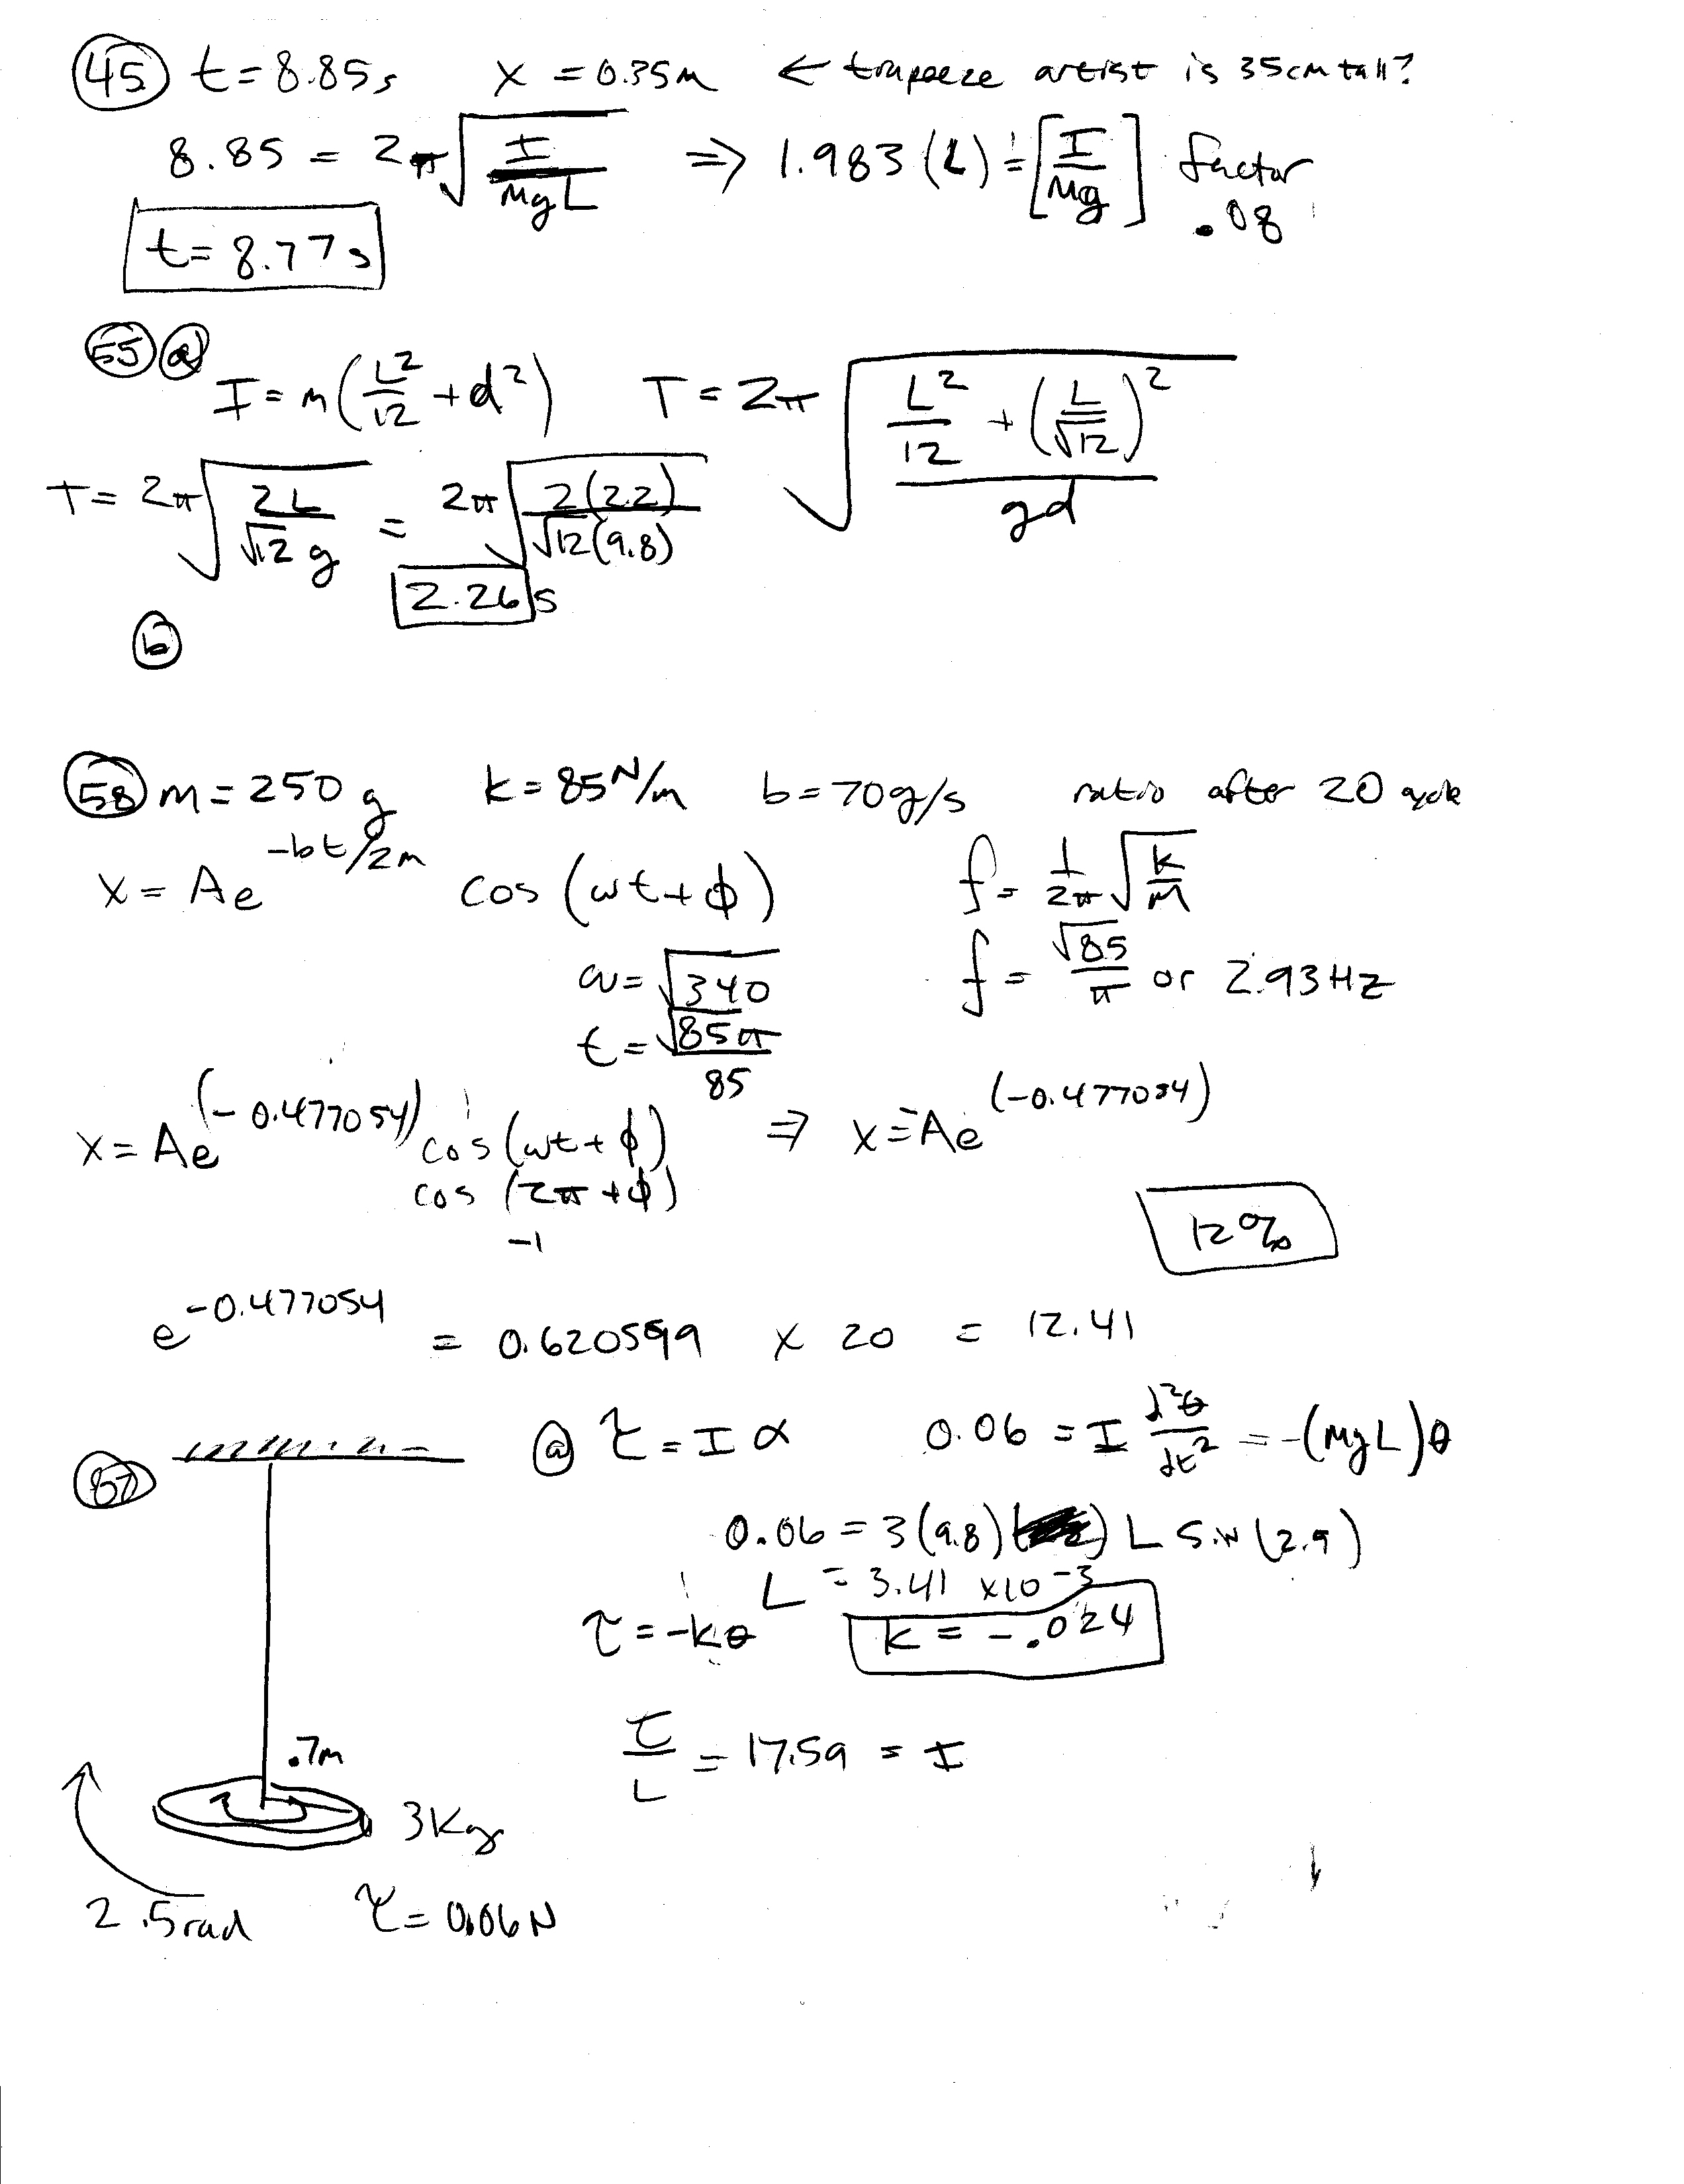 45 t = 8.85s x = 0.35m ← trapeeze artist is 35cm tall?
8.85 = 2π√(I/MgL) ⇒ 1.983 (L) = [I/Mg] factor .08
t = 8.77s
55 a I = m(L²/12 + d²) T = 2π√((L²/12 + (L/√12)²)/gd)
T = 2π√(2L/√12 g) = 2π√(2(2.2)/√12(9.8))
2.26 s
b
58 m = 250g k = 85 N/m b = 70g/s ratio after 20 cycle
x = Ae^(-bt/2m) cos(ωt+ϕ) f = 1/2π √(k/M)
ω = √340 f = √85/π or 2.93Hz
t = √85π/85
x = Ae^(-0.477054) cos(ωt+ϕ) ⇒ x = Ae^(-0.477054)
cos(2π+ϕ)
-1
12%
e^-0.477054 = 0.620599 x 20 = 12.41
a τ = Iα 0.06 = I d²θ/dt² = -(MgL)θ
0.06 = 3(9.8) L Sin(2.5)
L = 3.41 x10^-3
τ = -kθ k = -.024
τ/L = 17.59 = I
.7m
3Kg
2.5rad τ = 0.06N